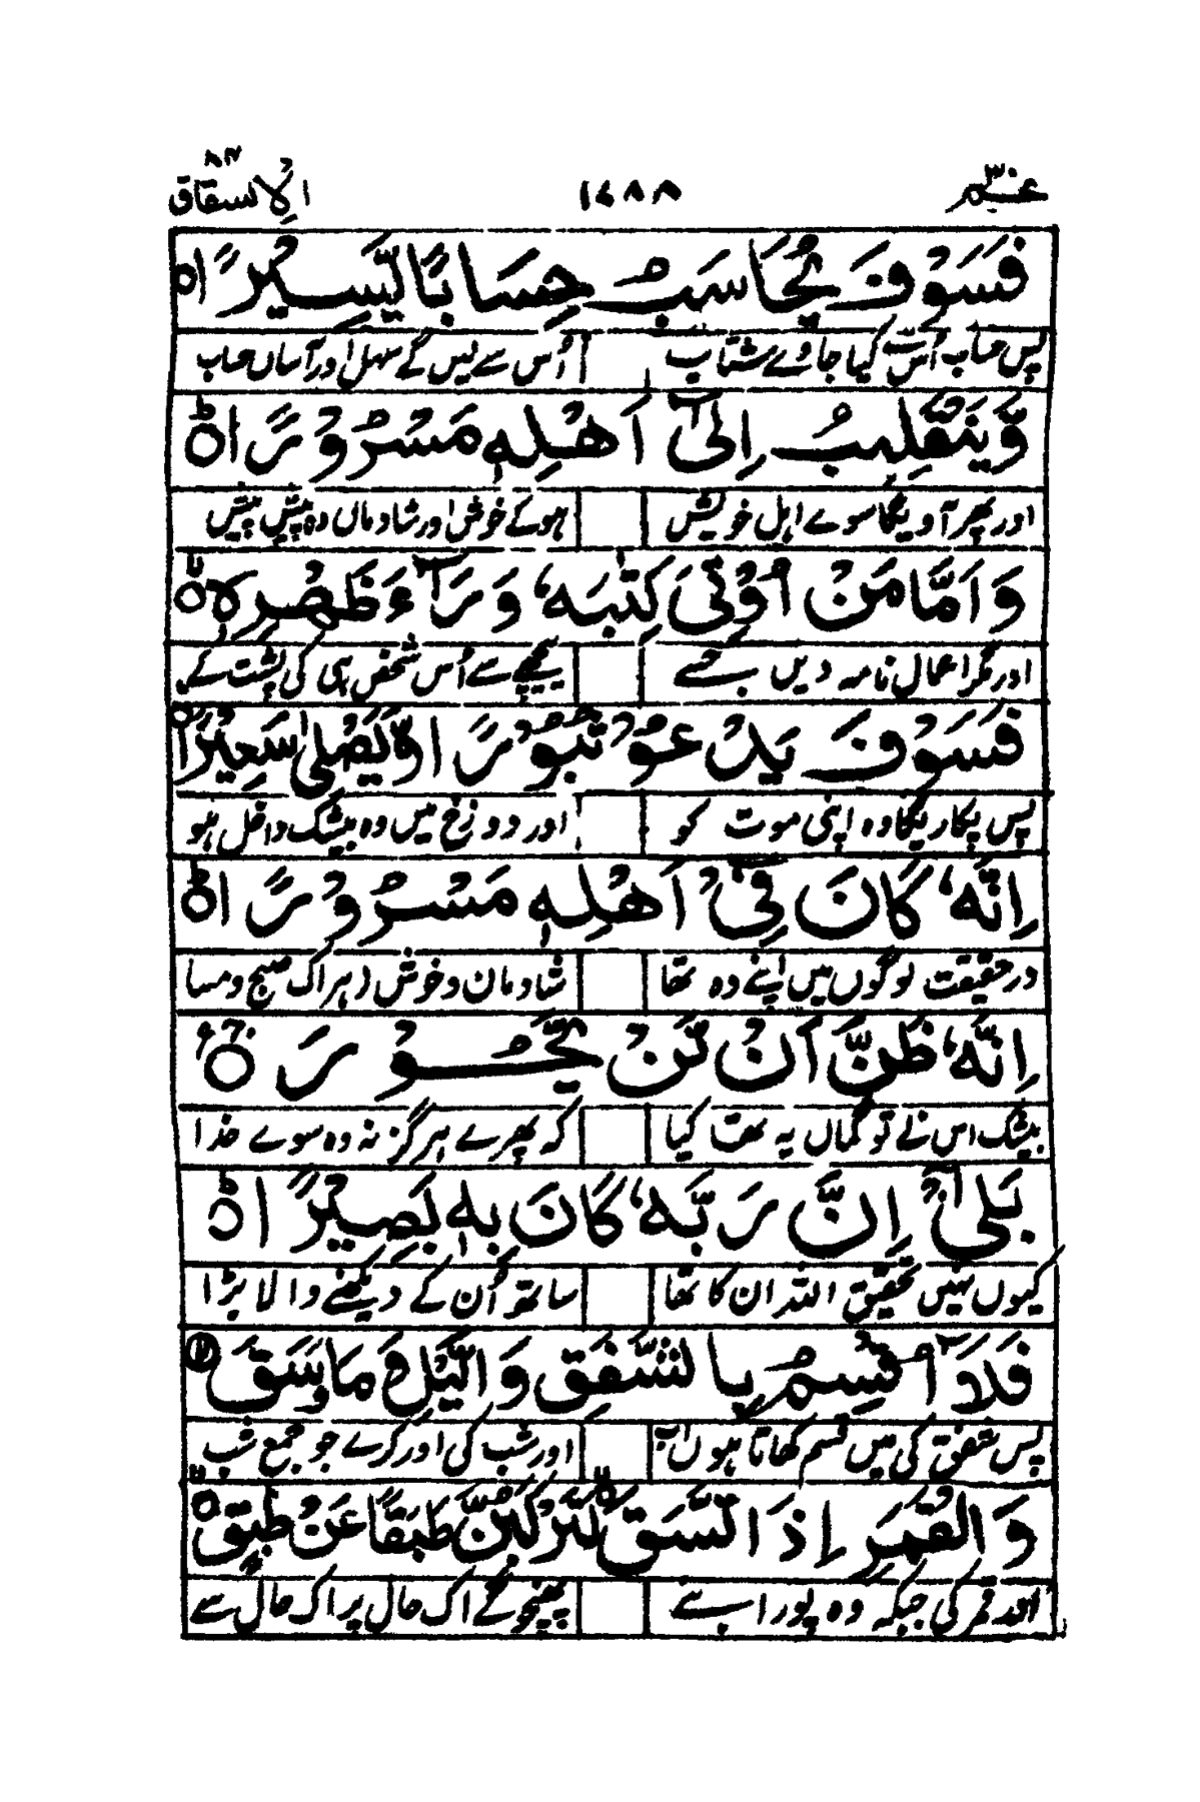 عـمّ ۱۷۸۸ الانشقاق ۸۴
فَسَوْفَ يُحَاسَبُ حِسَابًا يَّسِيْرًا ۙ
پس حساب اُس کیا جاوے شتاب اُس سے لیں گے سہل اور آساں حساب
وَّيَنْقَلِبُ اِلٰٓى اَهْلِهٖ مَسْرُوْرًا ؕ
اور پھر آویگا سوے اہل خویش ہو کے خوش اور شادماں وہ بیش بیش
وَاَمَّا مَنْ اُوْتِىَ كِتٰبَهٗ وَرَآءَ ظَهْرِهٖ ۙ
اور مگر اعمال نامہ دیں جسے پیچھے سے اُس شخص ہی کی پشت کے
فَسَوْفَ يَدْعُوْا ثُبُوْرًا ۙ وَّيَصْلٰى سَعِيْرًا ؕ
پس پکاریگا وہ اپنی موت کو اور دوزخ میں وہ بیشک داخل ہو
اِنَّهٗ كَانَ فِىْٓ اَهْلِهٖ مَسْرُوْرًا ؕ
درحقیقت لوگوں میں اپنے وہ تھا شادمان و خوش (ہر اک صبح و مسا
اِنَّهٗ ظَنَّ اَنْ لَّنْ يَّحُوْرَ ۚ
بیشک اس نے تو گماں یہ تھا کیا کہ پھرے ہرگز نہ وہ سوے خدا
بَلٰٓى ۛ اِنَّ رَبَّهٗ كَانَ بِهٖ بَصِيْرًا ؕ
کیوں نہیں تحقیق اللہ ان کا تھا ساتھ اُن کے دیکھنے والا بڑا
فَلَاۤ اُقْسِمُ بِالشَّفَقِ ۙ وَالَّيْلِ وَمَا وَسَقَ ۙ
پس شفق کی میں قسم کھاتا ہوں اب اور شب کی اور کرے جو جمع شب
وَالْقَمَرِ اِذَا اتَّسَقَ ۙ لَتَرْكَبُنَّ طَبَقًا عَنْ طَبَقٍ ؕ
اور قمر کی جبکہ وہ پورا بنے پہنچو گے اک حال پر اک حال سے